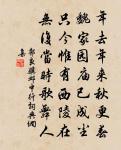 年去年来秋更春
魏家园庙已成尘
只今惟有西陵在
无復當時歌舞人
郭良骥邺中行词典網
集